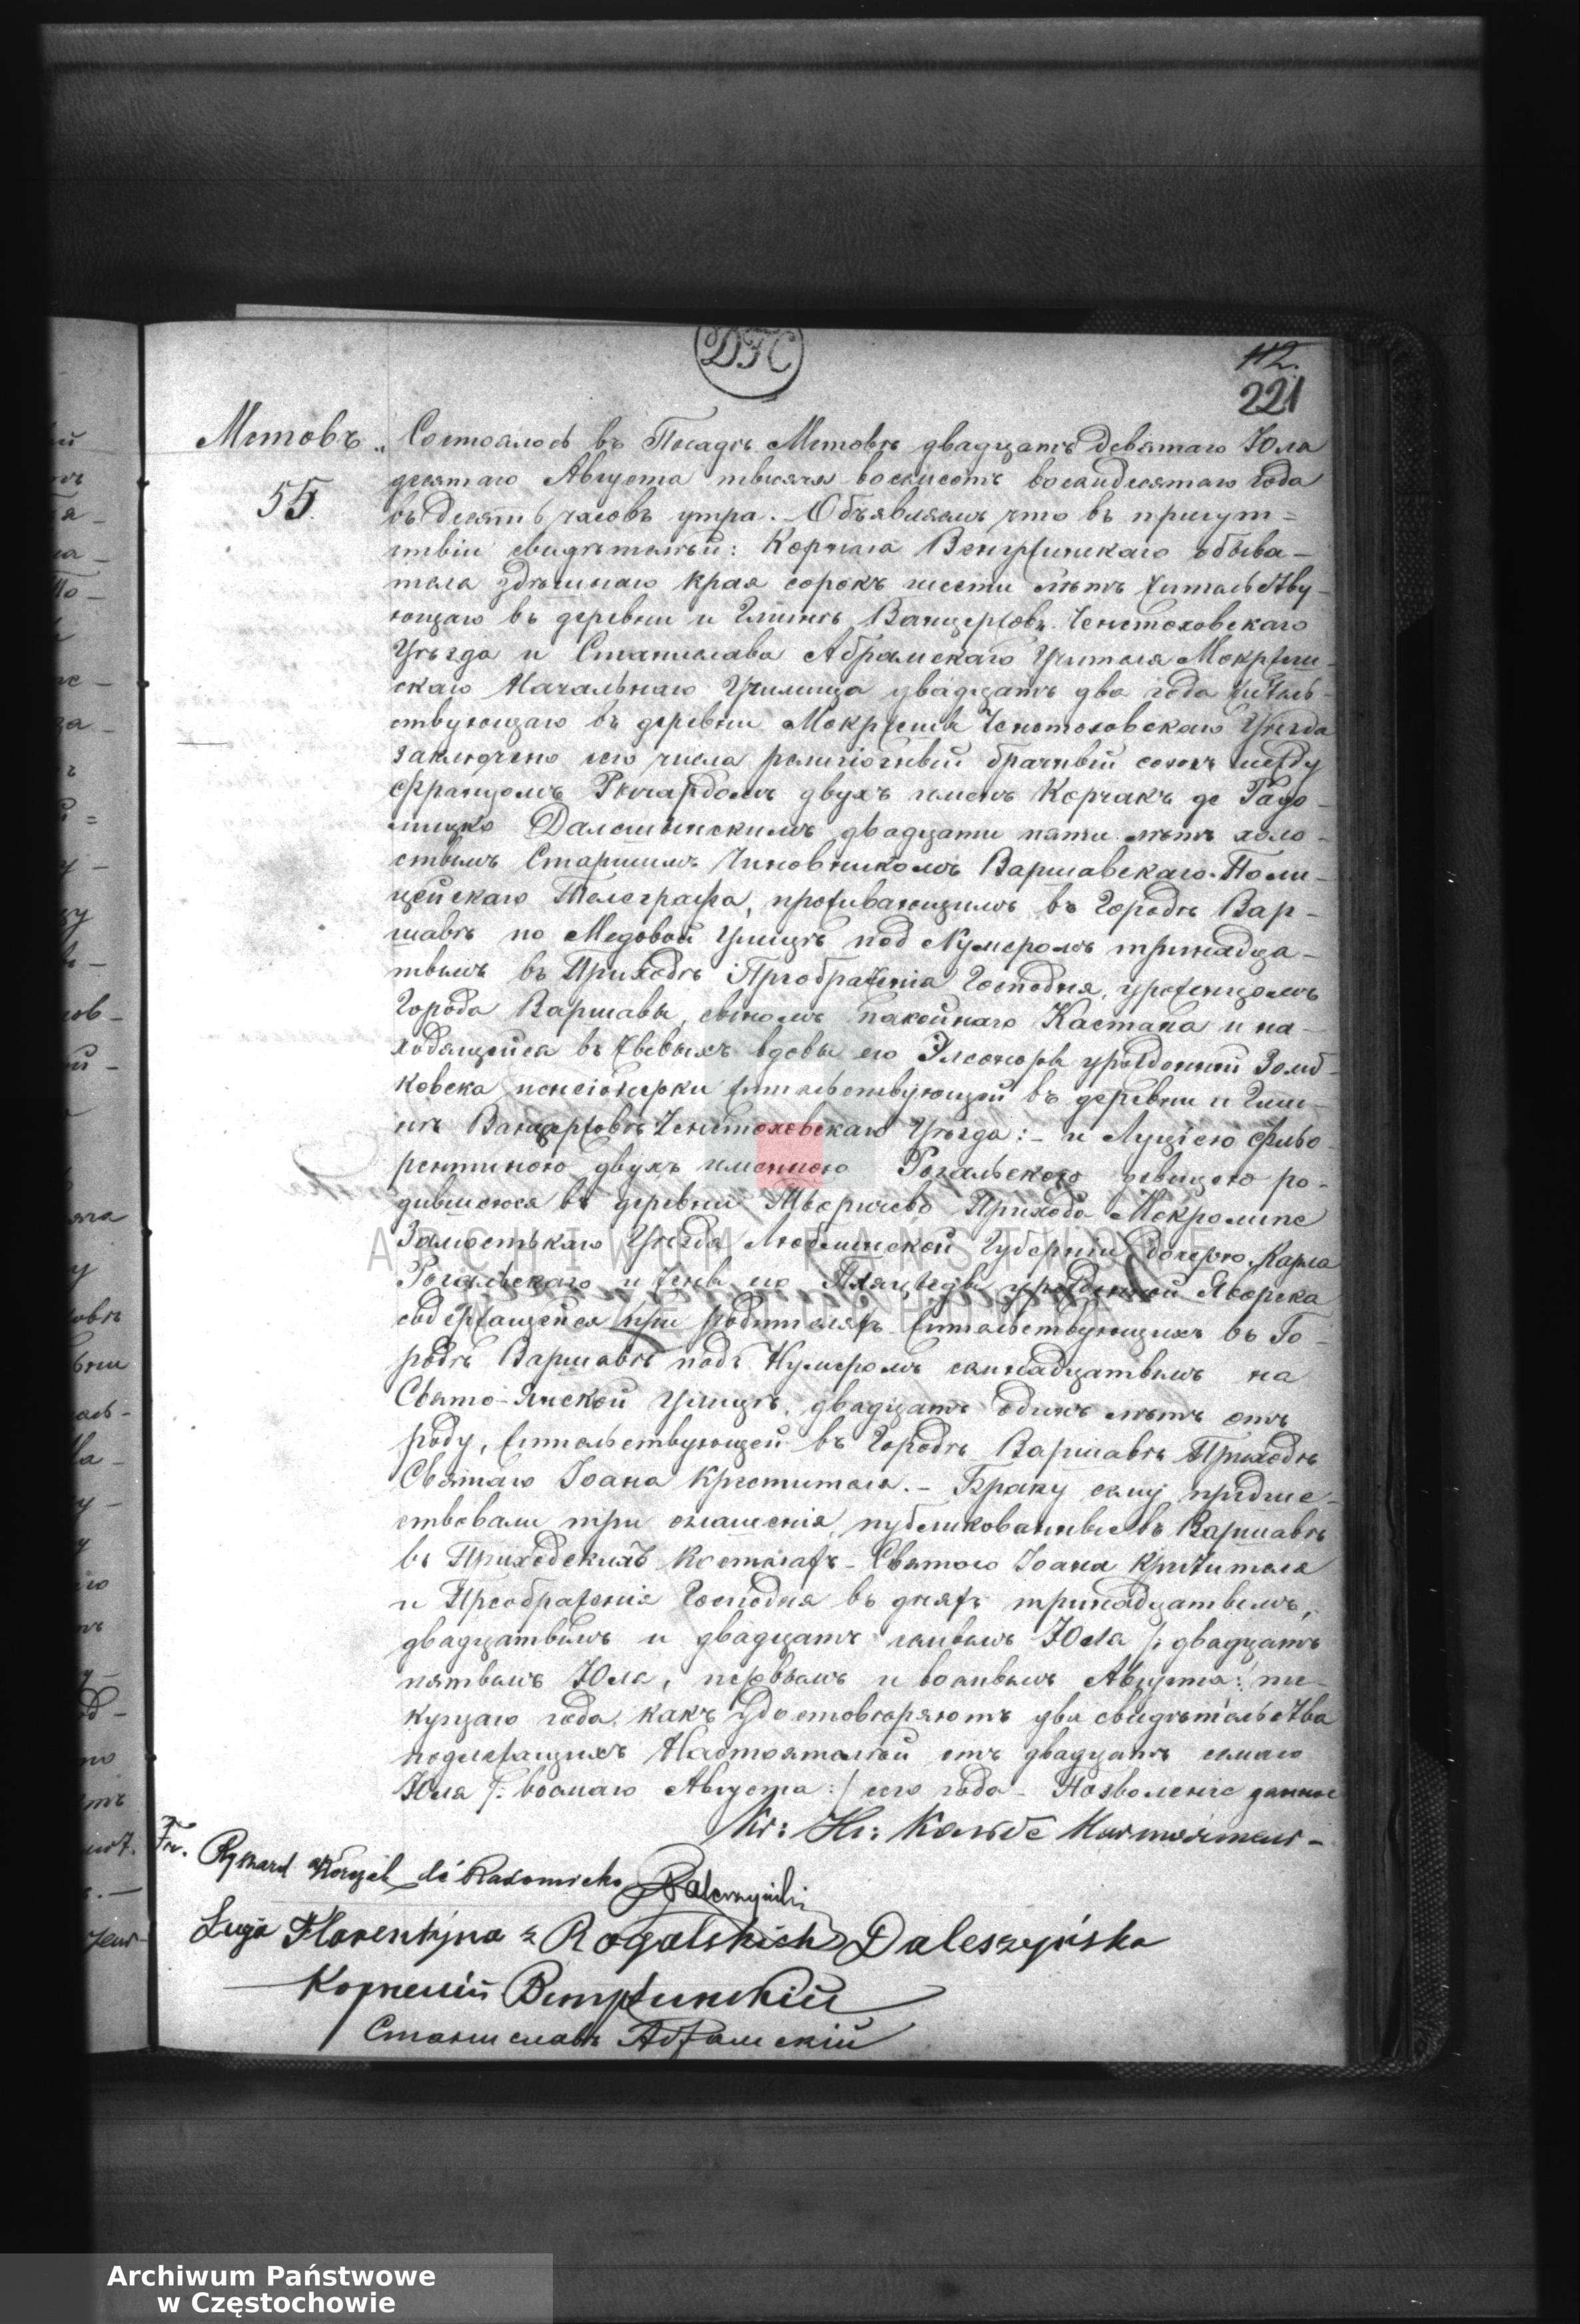 DTC
112.
221
Мстовъ
55.
Состоялось въ Посадѣ Мстовѣ двадцать девятаго Юла
десятаго Августа тысяча восемсотъ восемдесятаго года
въ десять часовъ утра. Объявляемъ что въ присут=
ствіи свидѣтелей: Корнела Венгржинскаго обыва-
теля здѣшнаго края сорокъ шести лѣтъ жительству-
ющаго въ деревни и Гминѣ Ванцержовъ Ченстоховскаго
Уѣзда и Станислава Абрамскаго Учителя Мокржеш-
скаго Начальнаго Училища двадцать два года житель-
ствующаго въ деревни Мокржеша Ченстоховскаго Уѣзда
заключено сего числа религіозный брачный союзъ между
Францомъ Рычардомъ двухъ именъ Корчакъ де Радо-
мицко Далешинскимъ двадцати пяти лѣтъ холо-
стымъ Старшимъ Чиновникомъ Варшавскаго Поли-
цейскаго Телеграфа, проживающимъ въ Городѣ Вар-
шавѣ по Медовой Улицѣ под Нумеромъ тринадца-
тымъ въ Приходѣ Преображенія Господня, уроженцомъ
Города Варшавы, сыномъ покойнаго Каетана и на-
ходящейся въ живыхъ вдовы его Элеоноры урожденной Земб-
ковска пенсіонерки жительствующей въ деревни и Гми-
нѣ Ванцержовѣ Ченстоховскаго Уѣзда: - и Луціею Фльо-
рентиною двухъ именною Рогальскою девицею ро-
дившеюся въ деревни Творичево Прихода Мокролипе
Замостьскаго Уѣзда Люблинской Губерніи дочерю Карла
Рогальскаго и жены его урожденной Яворска
содержащейся при родителяхъ жительствующихъ въ Го-
родѣ Варшавѣ подъ Нумеромъ семнадцатымъ на
Свято-Янской Улицѣ, двадцать одинъ лѣтъ отъ
роду, жительствующей въ Городѣ Варшавѣ Приходѣ
Святаго Іоана Крестителя. - Браку сему предше-
ствовали три оглашенія, публикованные въ Варшавѣ
въ Приходскихъ Костелахъ - Святого Іоана Крестителя
и Преображенія Господня въ дняхъ тринадцатымъ,
двадцатымъ и двадцать семымъ Юла /: двадцать
пятымъ Юла, первымъ и восмымъ Августа :/ те-
кущаго года, какъ удостовѣряютъ два свидѣтельства
подлежащихъ Настоятелей отъ двадцать семаго
Юля /: восмаго Августа :/ сего года - Позволеніе данное
Fr. Ryszard Korczak de Radomicko Daleszyński
Łucja Florentyna z Rogalskich Daleszyńska
Корнелій Венгржинскій
Станиславъ Абрамскій
ARCHIWUM PAŃSTWOWE
W CZĘSTOCHOWIE
Archiwum Państwowe
w Częstochowie